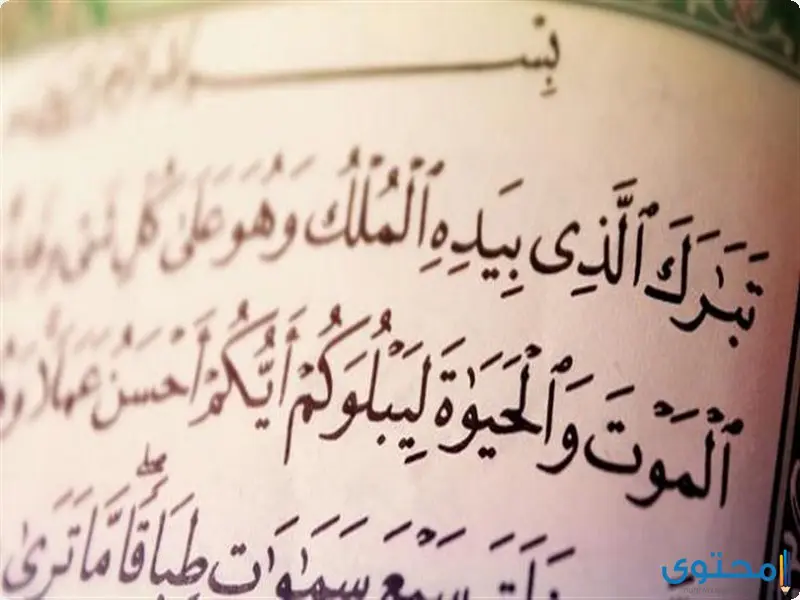 بِسْــــمِ
تَبَٰرَكَ ٱلَّذِى بِيَدِهِ ٱلْمُلْكُ وَهُوَ عَلَىٰ كُلِّ شَىْءٍ
ٱلْمَوْتَ وَٱلْحَيَوٰةَ لِيَبْلُوَكُمْ أَيُّكُمْ أَحْسَنُ عَمَلًا
سَبْعَ سَمَٰوَٰتٍ طِبَاقًا ۖ مَّا تَرَىٰ
محتوى